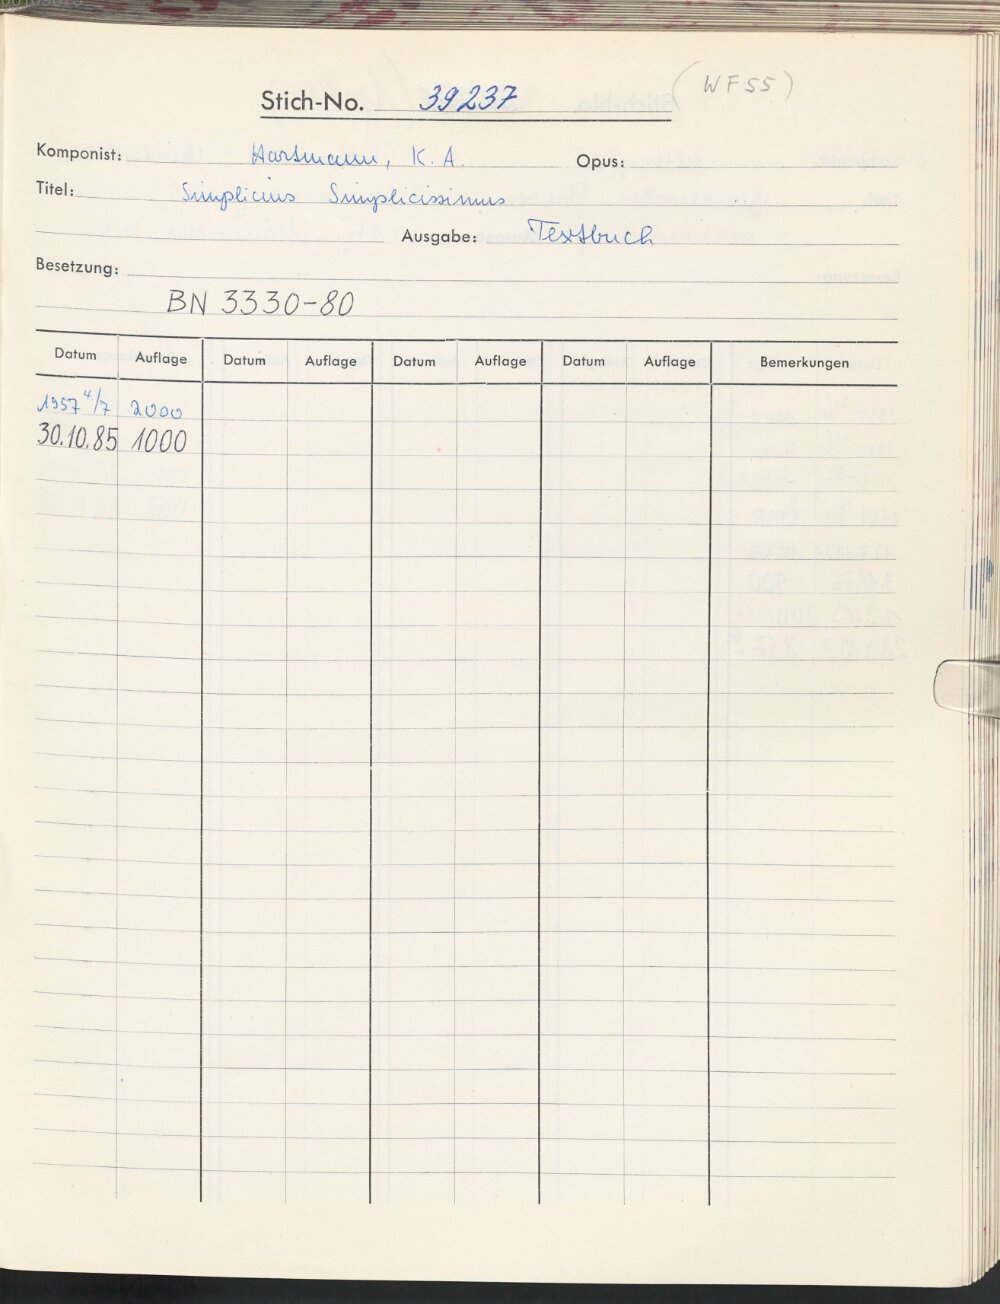 Stich-No. 39237 (WF 55)
Komponist: Hartmann, K. A. Opus:
Titel: Simplicius Simplicissimus
Ausgabe: Textbuch
Besetzung:
BN 3330-80
Datum Auflage Datum Auflage Datum Auflage Datum Auflage Bemerkungen
1957 4/7 2000
30.10.85 1000